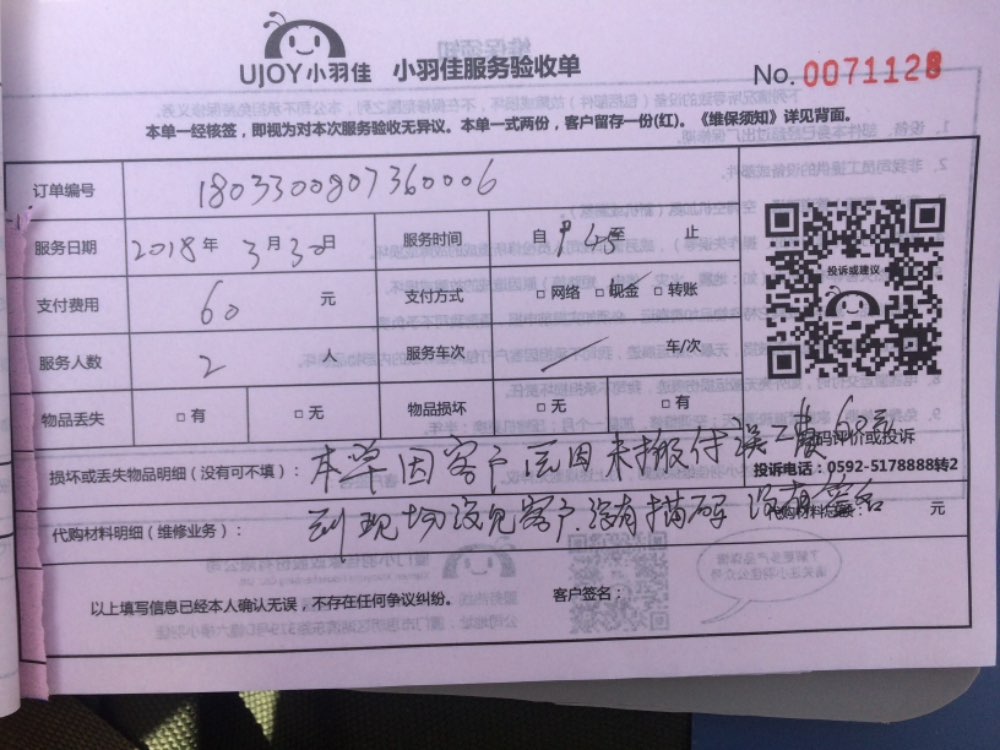 UJOY小羽佳 小羽佳服务验收单
No. 0071128
本单一经核签，即视为对本次服务验收无异议。本单一式两份，客户留存一份(红)。《维保须知》详见背面。
订单编号 1803300807360006
服务日期 2018年 3月30日 服务时间 自 至 止
投诉或建议
支付费用 60 元 支付方式 □ 网络 □ 现金 □ 转账
服务人数 2 人 服务车次 车/次
物品丢失 □ 有 □ 无 物品损坏 □ 无 □ 有
损坏或丢失物品明细（没有可不填）： 本单因客户原因未搬付误工费60元
扫码评价或投诉
投诉电话：0592-5178888转2
代购材料明细（维修业务）： 到现场没见客户.没有扫码 没有签名
代购材料总额： 元
以上填写信息已经本人确认无误，不存在任何争议纠纷。 客户签名：